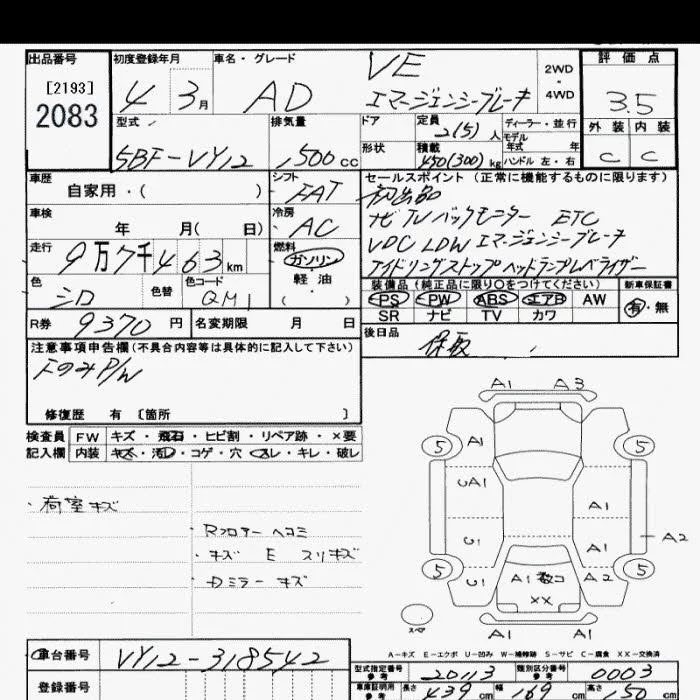 出品番号 初度登録年月 車名・グレード VE 2WD・4WD 評価点
[2193] 2083 4 3月 AD エマージェンシーブレーキ 3.5
型式 排気量 ドア 定員 2(5)人 ディーラー・並行 外装 内装
5BF-VY12 1,500cc 形状 積載 450(300)kg モデル年式 年 ハンドル 左・右 C C
車歴 シフト セールスポイント (正常に機能するものに限ります)
自家用・( ) FAT 初出品
車検 冷房 ナビ TV バックモニター ETC
年 月( 日) AC VDC LDW エマージェンシーブレーキ
走行 9万7千463km 燃料 ガソリン アイドリングストップ ヘッドランプレベライザー
色 色替 色コード 軽油 装備品 (純正品に限り〇をつけてください) 新車保証書
シロ QM1 ( ) PS PW ABS エアB AW 有・無
SR ナビ TV カワ
R券 9370円 名変期限 月 日 後日品
保取
注意事項申告欄(不具合内容等は具体的に記入して下さい)
Fのみ P/W
修復歴 有 〔箇所 〕
検査員 FW キズ・飛石・ヒビ割・リペア跡・×要
記入欄 内装 キズ・汚れ・コゲ・穴・スレ・キレ・破レ
・荷室キズ
・Rフロアーヘコミ
・キズ E スリキズ
・Dミラーキズ
A1 A3
5 A1 5
UA1 A1
U1 A1 A2
5 U1 A1 数コ A2 5
XX
スペア A1 A1
A-キズ E-エクボ U-凹み W-補修跡 S-サビ C-腐食 XX-交換済
車台番号 VY12-318542
型式指定番号 参考 20113 類別区分番号 参考 0003
登録番号 車庫証明用 参考 長さ 439cm 幅 169cm 高さ 150cm